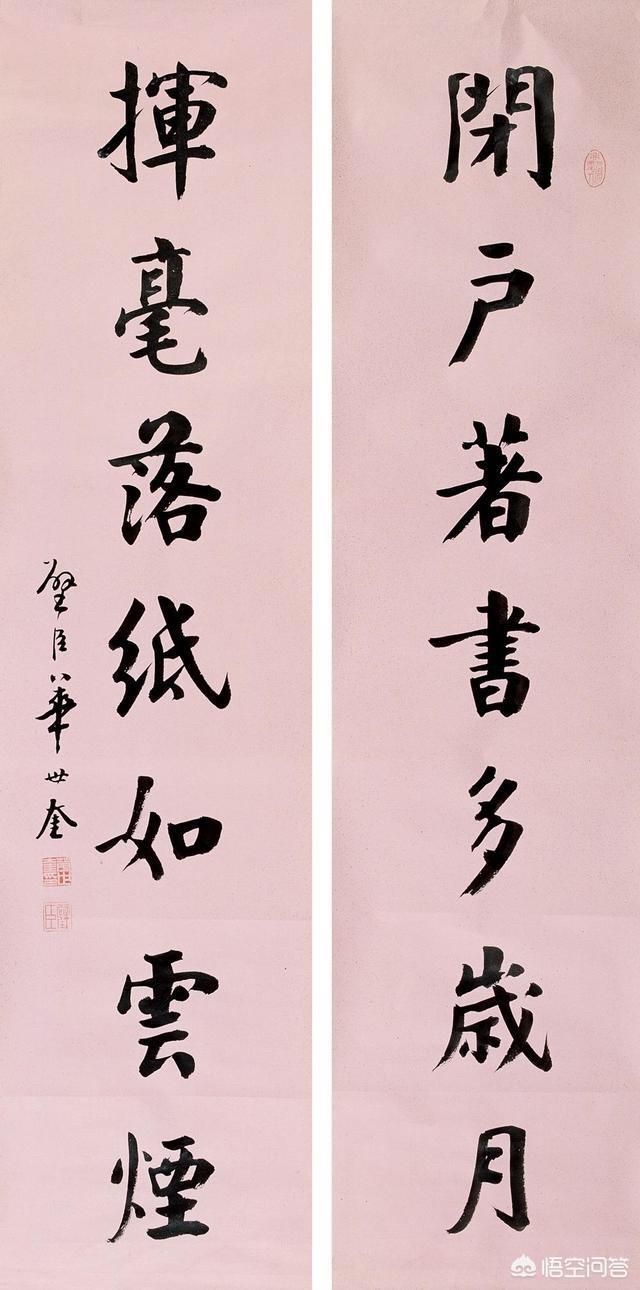 閉户著書多歲月
揮毫落紙如雲煙
璧臣華世奎
悟空问答